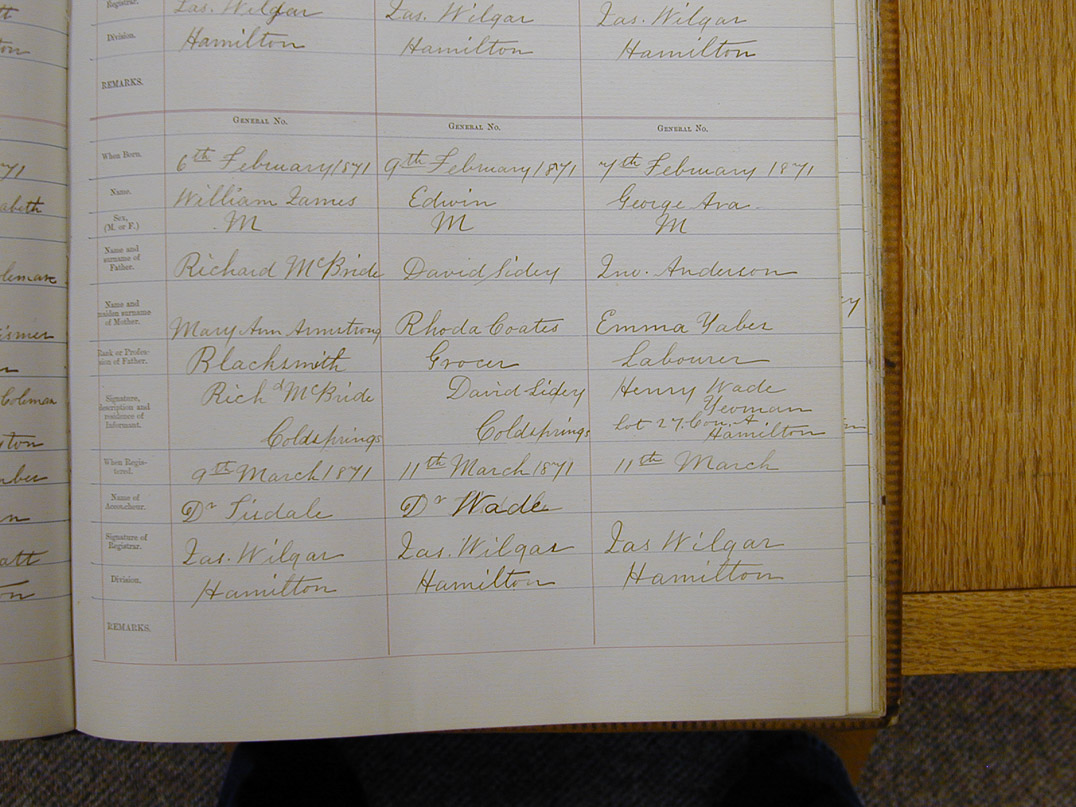 Registrar. Jas. Wilgar Jas. Wilgar Jas. Wilgar
Division. Hamilton Hamilton Hamilton
REMARKS.
GENERAL No. GENERAL No. GENERAL No.
When Born. 6th February 1871 9th February 1871 7th February 1871
Name. William James Edwin George Ava
abeth
Sex, (M. or F.) M M M
Name and
surname of
Father. Richard McBride David Sidey Jno. Anderson
Name and
maiden surname
of Mother. Mary Ann Armstrong Rhoda Coates Emma Yaber
Rank or Profes-
sion of Father. Blacksmith Grocer Labourer
Signature,
description and
residence of
Informant. Richd McBride David Sidey Henry Wade
Coleman
Yeoman
Coldsprings Coldsprings lot 27. Con. A
Hamilton
When Regis-
tered. 9th March 1871 11th March 1871 11th March
Name of
Accoucheur. Dr Tisdale Dr Wade
Signature of
Registrar. Jas. Wilgar Jas. Wilgar Jas Wilgar
Division. Hamilton Hamilton Hamilton
REMARKS.